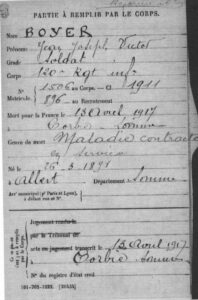 PARTIE À REMPLIR PAR LE CORPS.
Nom BOYER
Prénoms Jean Joseph Victor
Grade Soldat
Corps 130e Rgt inf
N° 1506 au Corps. — Cl. 1911
Matricule. 896 au Recrutement
Mort pour la France le 13 Avril 1917
à Corbie Somme
Genre de mort Maladie contractée
en service
Né le 26-3-1891
à Albert Département Somme
Arr municipal (pr Paris et Lyon),
à défaut rue et N°.
Jugement rendu le
par le Tribunal de
acte ou jugement transcrit le 13 Avril 1917
à Corbie Somme
N° du registre d'état civil